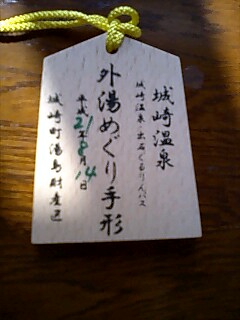 城崎温泉
城崎温泉・出石ぐるりんバス
外湯めぐり手形
平成21年8月14日
城崎町湯島財産区